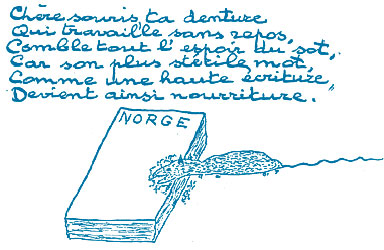 Chère souris, ta denture
Qui travaille sans repos,
Comble tout l'espoir du sot,
Car son plus stétile mot,
Comme une haute écriture,
Devient ainsi nourriture.
NORGE